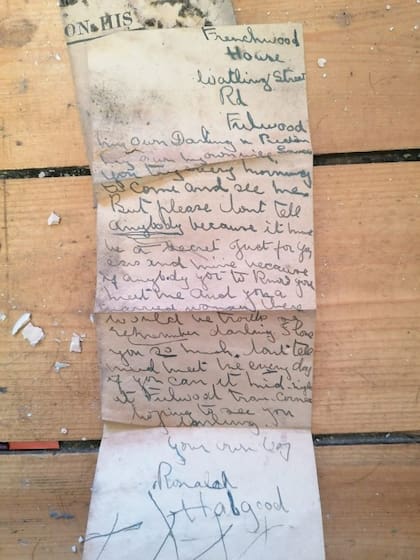 ON HIS
Frenchwood
House
Watling Street
Rd
Fulwood
My own Darling
my own
you every morning
to come and see me
But please dont tell
anybody because it must
be a secret Just for
and mine because
if anybody got to know you
meet me and you a
married woman there
would be trouble
remember darling I love
you so much. dont tell
and meet me every day
if you can at mid-night
at Fulwood tram Corner
hoping to see you
Darling
your own
Ronald
Habgood